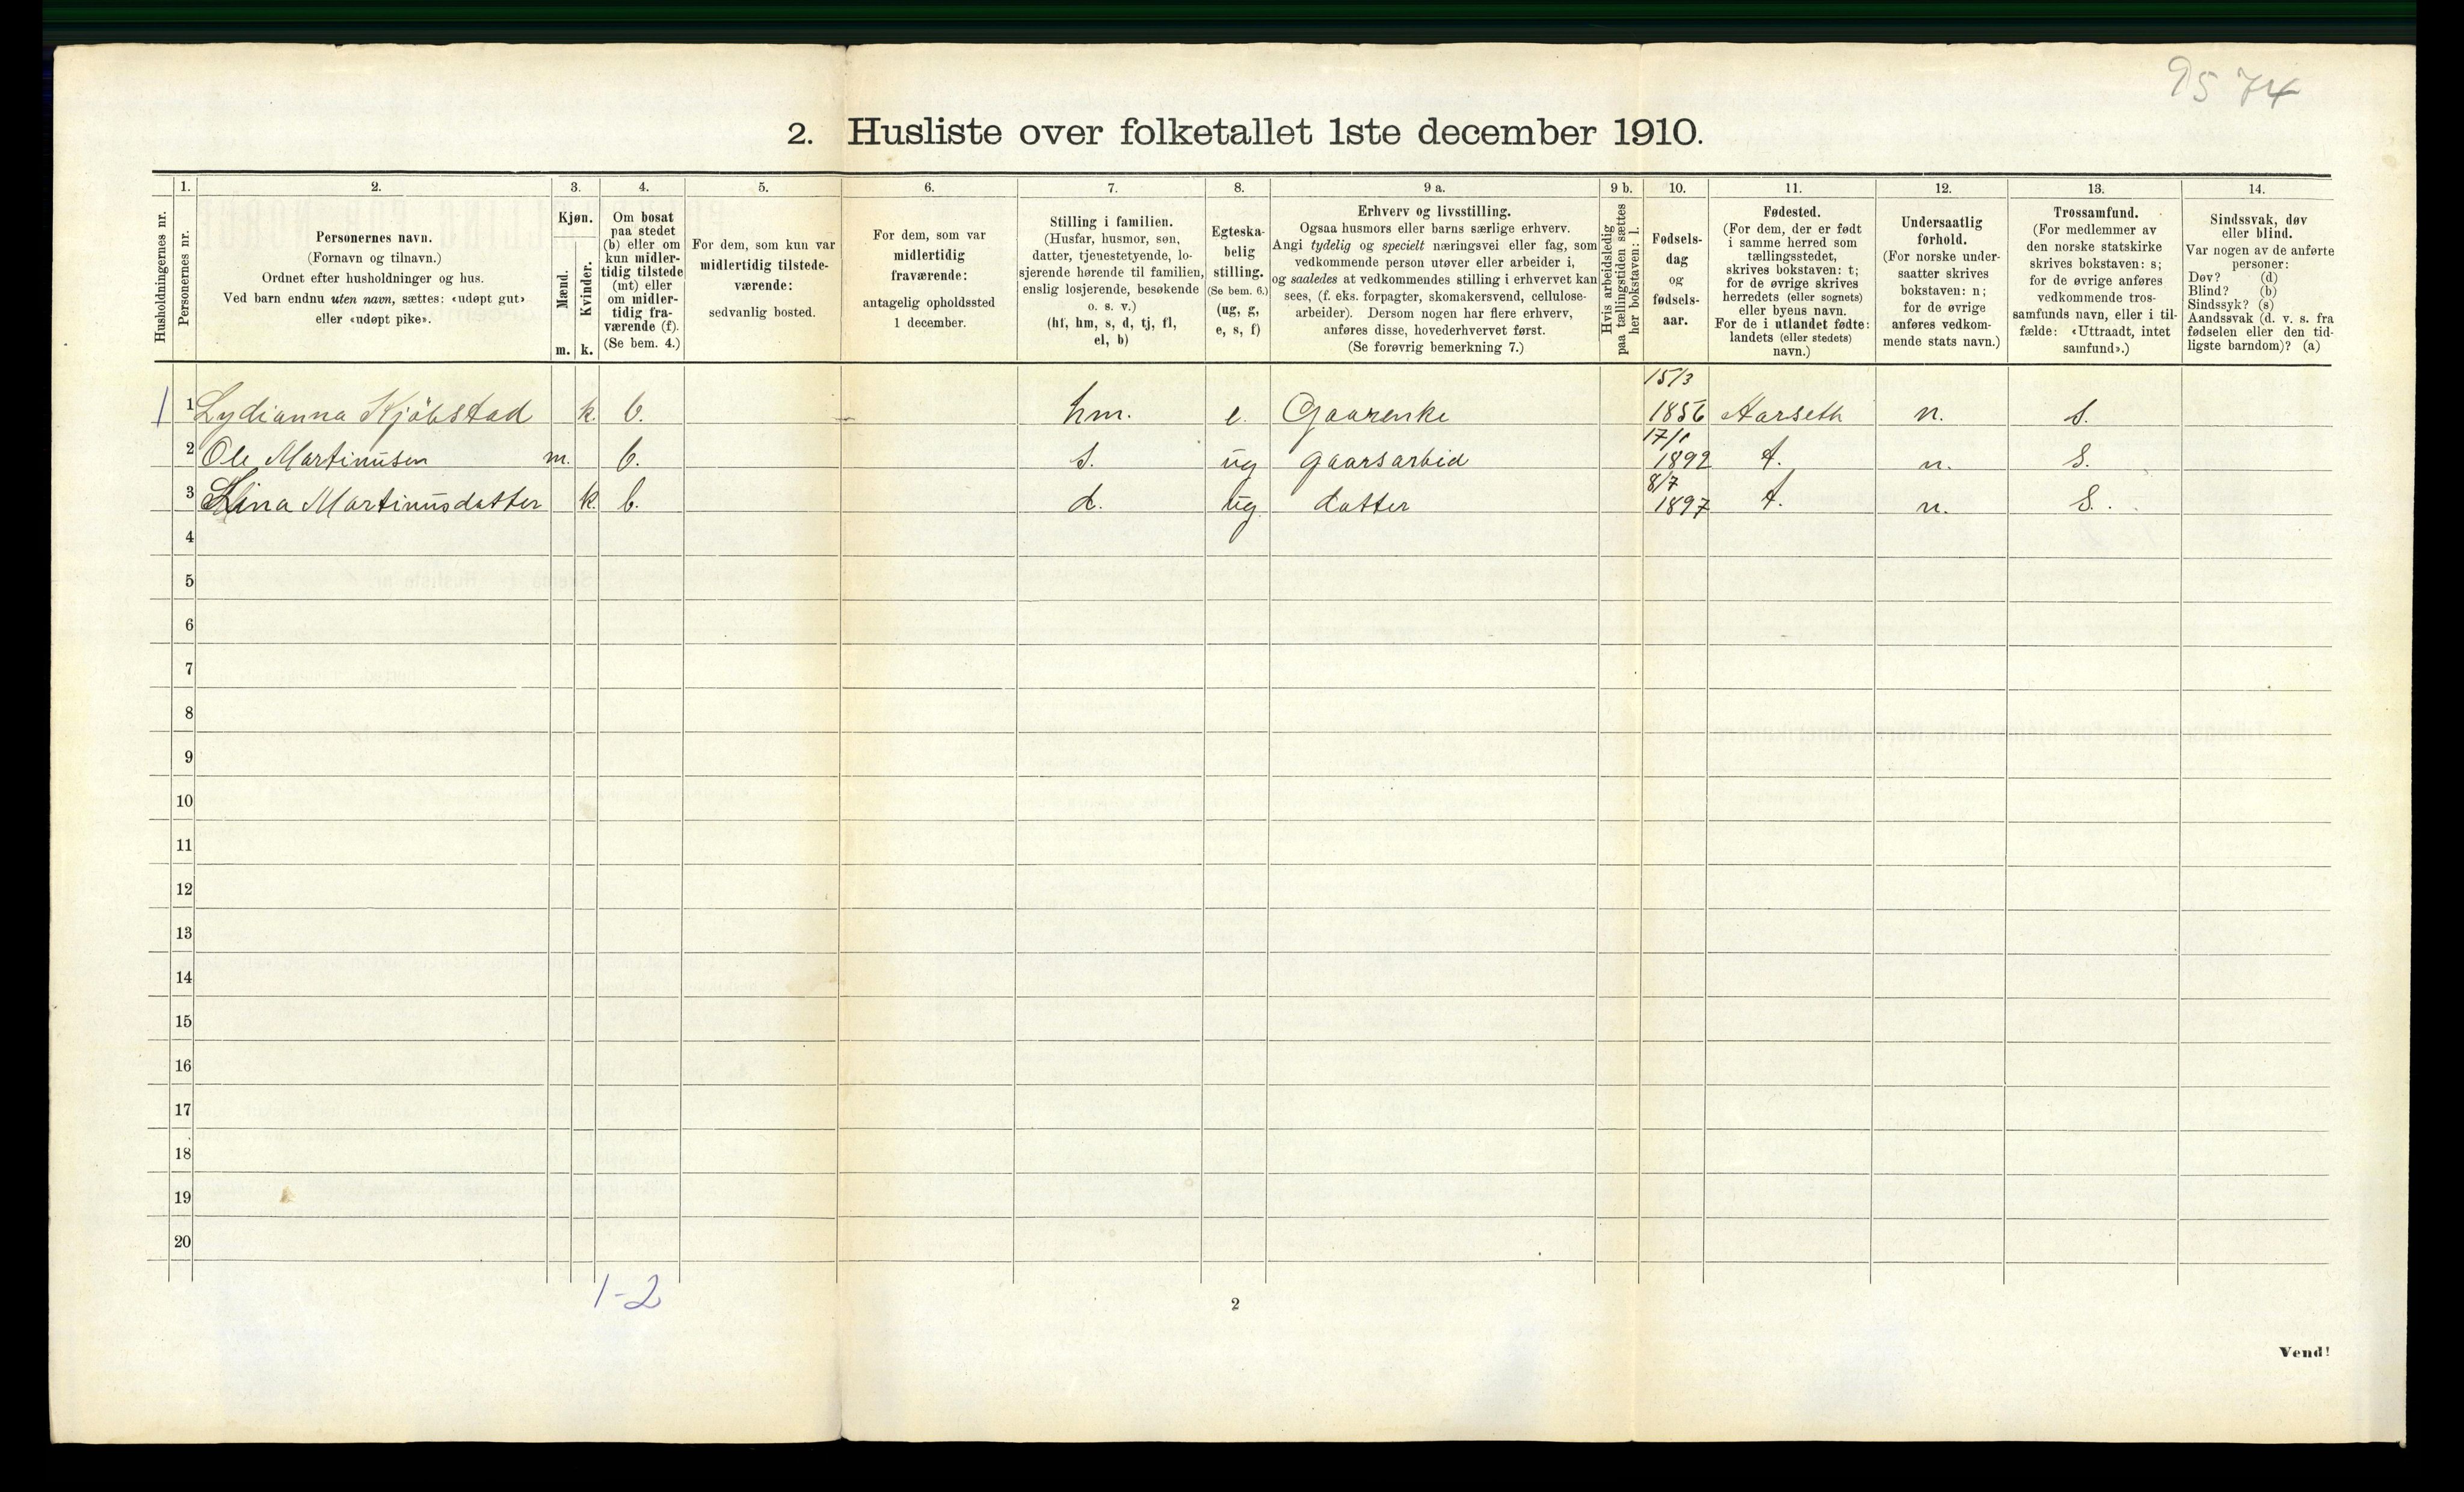 9574
2. Husliste over folketallet 1ste december 1910.
Husholdningernes nr.
1.
Personernes nr.
2.
Personernes navn.
(Fornavn og tilnavn.)
Ordnet efter husholdninger og hus.
Ved barn endnu uten navn, sættes: «udøpt gut»
eller «udøpt pike».
3.
Kjøn.
Mænd.
Kvinder.
m. k.
4.
Om bosat
paa stedet
(b) eller om
kun midler-
tidig tilstede
(mt) eller
om midler-
tidig fra-
værende (f).
(Se bem. 4.)
5.
For dem, som kun var
midlertidig tilstede-
værende:
sedvanlig bosted.
6.
For dem, som var
midlertidig
fraværende:
antagelig opholdssted
1 december.
7.
Stilling i familien.
(Husfar, husmor, søn,
datter, tjenestetyende, lo-
sjerende hørende til familien,
enslig losjerende, besøkende
o. s. v.)
(hf, hm, s, d, tj, fl,
el, b)
8.
Egteska-
belig
stilling.
(Se bem. 6.)
(ug, g,
e, s, f)
9 a.
Erhverv og livsstilling.
Ogsaa husmors eller barns særlige erhverv.
Angi tydelig og specielt næringsvei eller fag, som
vedkommende person utøver eller arbeider i,
og saaledes at vedkommendes stilling i erhvervet kan
sees, (f. eks. forpagter, skomakersvend, cellulose-
arbeider). Dersom nogen har flere erhverv,
anføres disse, hovederhvervet først.
(Se forøvrig bemerkning 7.)
9 b.
Hvis arbeidsledig
paa tællingstiden sættes
her bokstaven: l.
10.
Fødsels-
dag
og
fødsels-
aar.
11.
Fødested.
(For dem, der er født
i samme herred som
tællingsstedet,
skrives bokstaven: t;
for de øvrige skrives
herredets (eller sognets)
eller byens navn.
For de i utlandet fødte:
landets (eller stedets)
navn.)
12.
Undersaatlig
forhold.
(For norske under-
saatter skrives
bokstaven: n;
for de øvrige
anføres vedkom-
mende stats navn.)
13.
Trossamfund.
(For medlemmer av
den norske statskirke
skrives bokstaven: s;
for de øvrige anføres
vedkommende tros-
samfunds navn, eller i til-
fælde: «Uttraadt, intet
samfund».)
14.
Sindssvak, døv
eller blind.
Var nogen av de anførte
personer:
Døv? (d)
Blind? (b)
Sindssyk? (s)
Aandssvak (d. v. s. fra
fødselen eller den tid-
ligste barndom)? (a)
15/3
1 1 Lydianna Kjöbstad k. b. hm. e. Gaarenke 1856 Aarseth n. s.
17/1
2 Ole Martinusen m. b. s. ug gaarsarbid 1892 t. n. s.
8/7
3 Lina Martinusdatter k. b. d. ug datter 1897 t. n. s.
4
5
6
7
8
9
10
11
12
13
14
15
16
17
18
19
20
1-2
2
Vend!